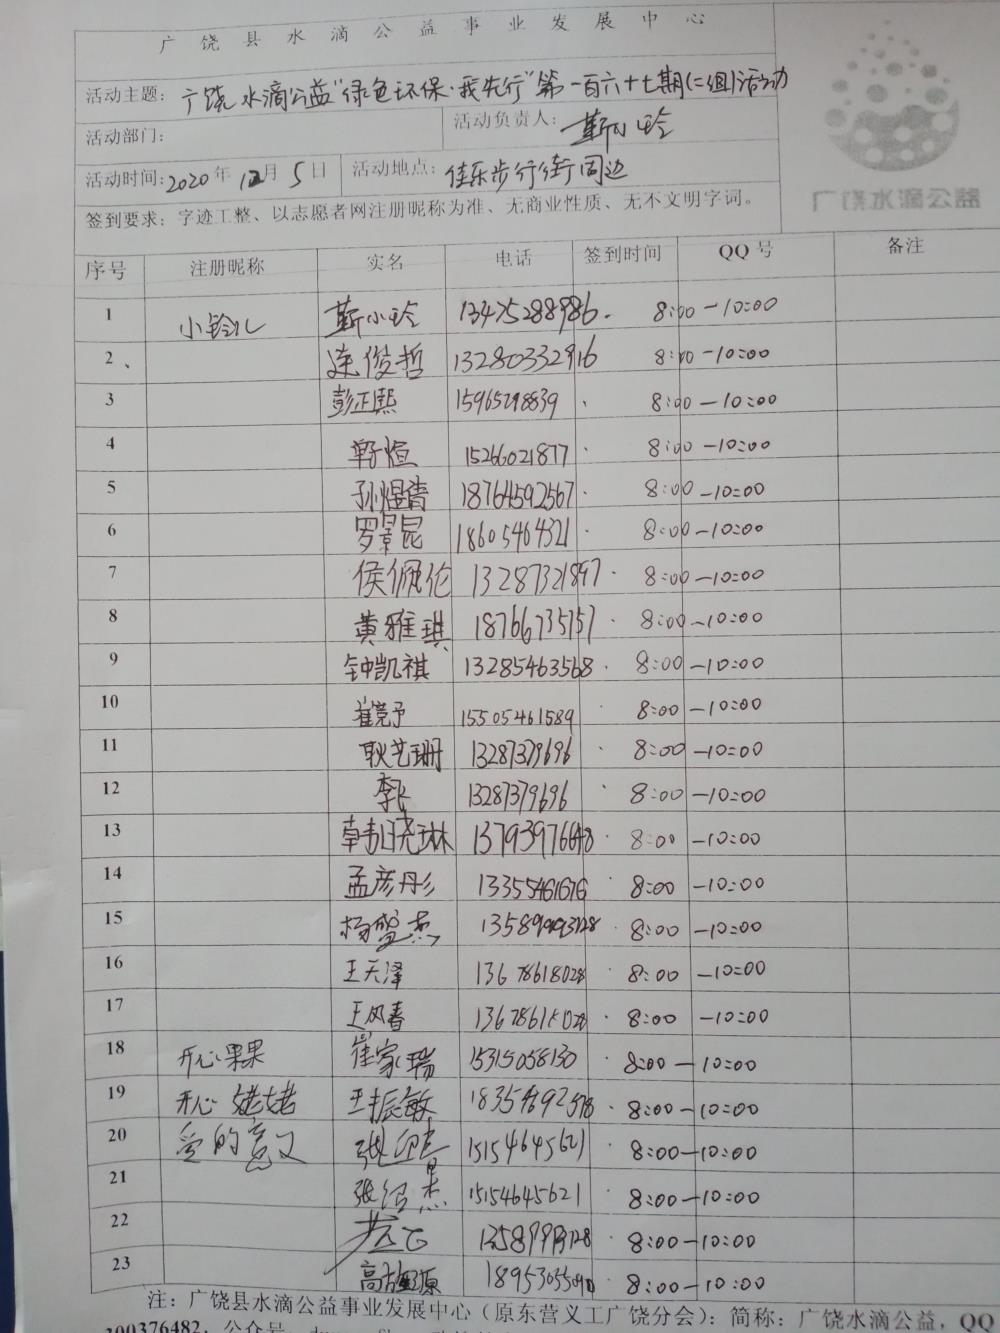 广饶县水滴公益事业发展中心
活动主题：广饶水滴公益“绿色环保·我先行”第一百六十七期(二组)活动
活动部门： 活动负责人：靳小玲
活动时间：2020年12月5日 活动地点：佳乐步行街周边
广饶水滴公益
签到要求：字迹工整、以志愿者网注册昵称为准、无商业性质、无不文明字词。
序号 注册昵称 实名 电话 签到时间 QQ号 备注
1 小铃儿 靳小玲 13475288986 8:00-10:00
2、 连俊哲 13280332916 8:00-10:00
3 彭正熙 15965298839 8:00-10:00
4 15266021877 8:00-10:00
5 孙煜倩 18764592567 8:00-10:00
6 罗景昆 18605464321 8:00-10:00
7 侯佩伦 13287321897 8:00-10:00
8 黄雅琪 18766735157 8:00-10:00
9 钟凯祺 13285463568 8:00-10:00
10 15505461589 8:00-10:00
11 耿艺珊 13287379696 8:00-10:00
12 13287379696 8:00-10:00
13 韩晓琳 13793976648 8:00-10:00
14 孟彦彤 13355461676 8:00-10:00
15 杨盛杰 8:00-10:00
16 王天泽 13678618028 8:00-10:00
17 王凤春 13678618028 8:00-10:00
18 开心果果 崔家瑞 15315058130 8:00-10:00
19 开心姥姥 王振敏 8:00-10:00
20 爱的意义 15154645621 8:00-10:00
21 15154645621 8:00-10:00
22 8:00-10:00
23 8:00-10:00
注：广饶县水滴公益事业发展中心（原东营义工广饶分会）：简称：广饶水滴公益，QQ
200376482，公众号